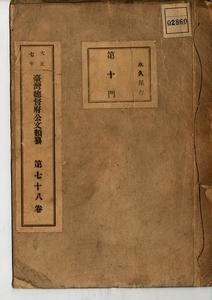 02860
永久保存
第十門
大正七年
臺灣總督府公文類纂 第七十八卷